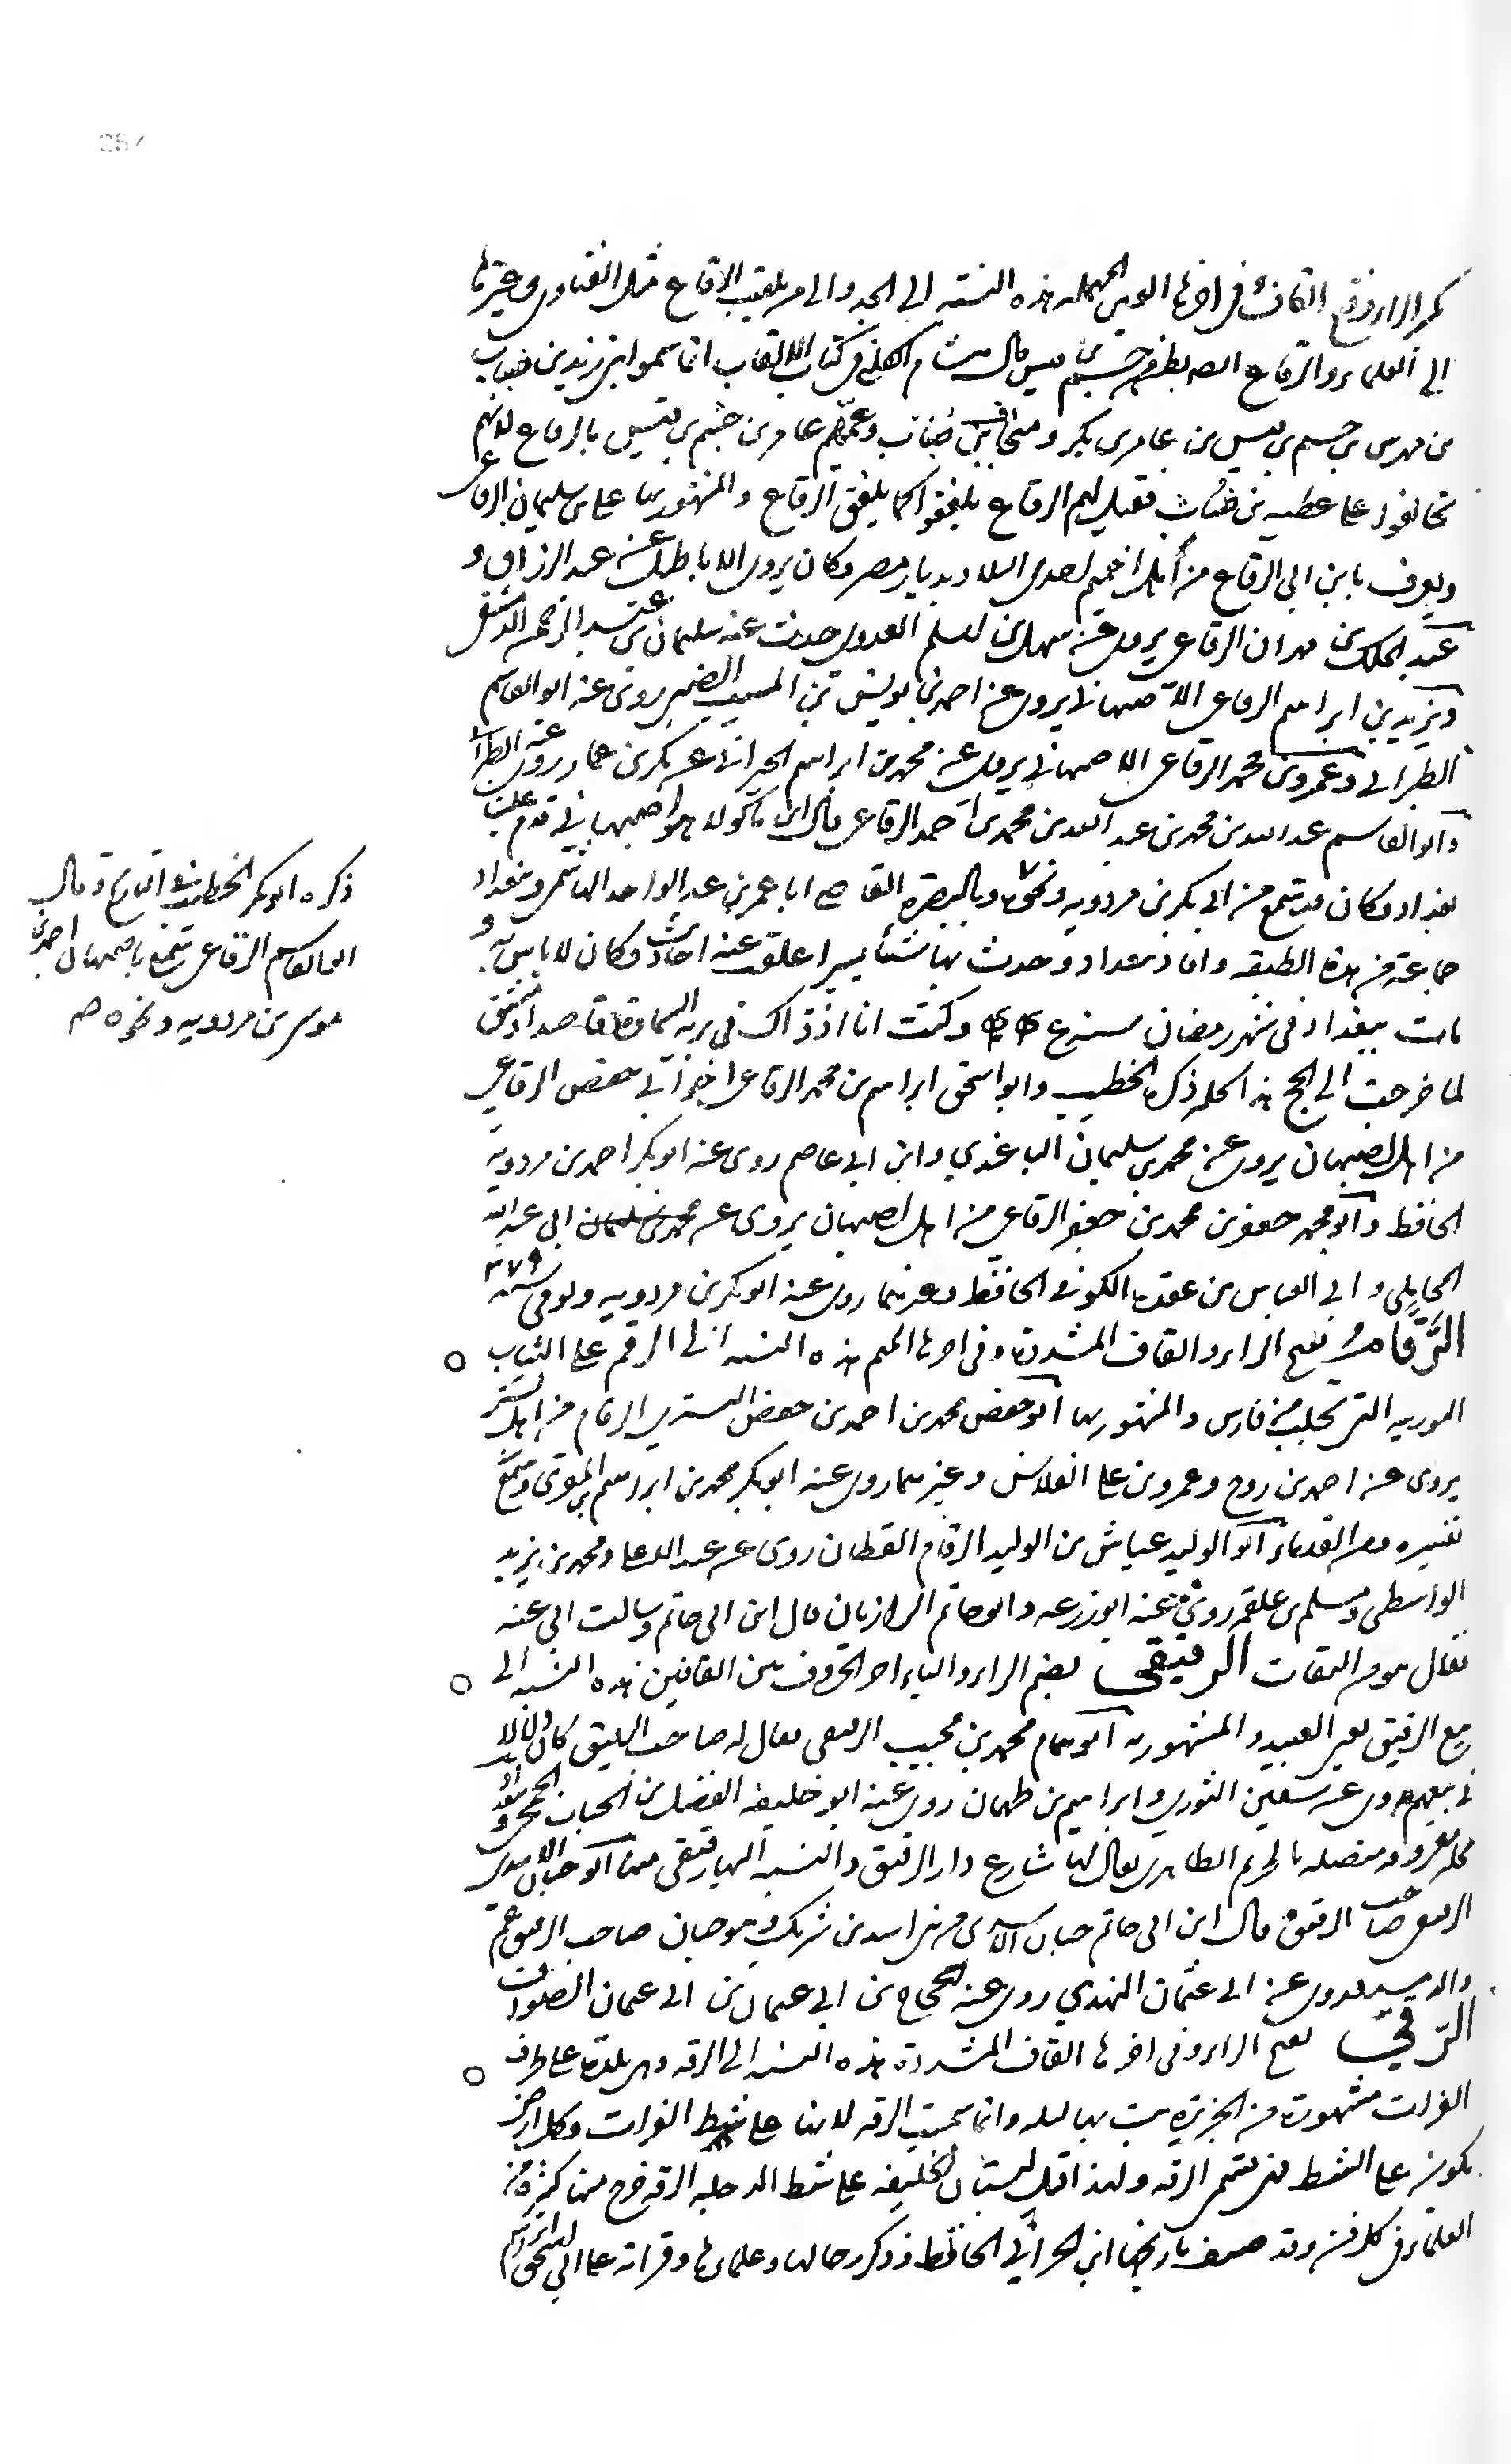 بكسر الراء وفتح القاف وفي اخرها العين المهملة هذه النسبة الى الجد والى من يلقب الرقاع
الى العلماء والرقاع قيس قال هشام الكلبي في كتاب الالقاب انما سموا بني زيد بن ضباب
من بن جشم بن قيس بن عامر بن بكر و بن ضباب وعمهم عامر بن جشم بن قيس بالرقاع لانهم
تحالفوا على عطية بن ضباب فقيل لهم الرقاع تلفقوا كما يلفق الرقاع والمشهور بها علي بن سليمان الرقاعي
ويعرف بابن ابي الرقاع من اهل اخميم احدى البلاد بديار مصر وكان يروي الاباطيل عن عبد الرزاق و
عبد الملك بن مهران الرقاعي يروي عن سهل بن اسلم العدوي حدث عنه سليمان بن عبد الرحمن الدمشقي
ويزيد بن ابراهيم الرقاعي الاصبهاني يروي عن احمد بن يونس بن المسيب الضبي روى عنه ابو القاسم
الطبراني وعمرو بن محمد الرقاعي الاصبهاني يروي عن محمد بن ابراهيم الجيراني عن بكر بن بكار روى عنه الطبراني
وابو القاسم عبد الله بن محمد بن عبد الله بن محمد بن احمد الرقاعي قال ابن ماكولا هو اصبهاني قدم علينا
بغداد وكان قد سمع من ابي بكر بن مردويه ونحوه وبالبصرة القاضي ابا عمر بن عبد الواحد الهاشمي وببغداد
جماعة من هذه الطبقة واقام ببغداد وحدث بها شيئا يسيرا علق عنه احاديث وكان لا باس به و
مات ببغداد في شهر رمضان سنة وكنت انا اذ ذاك في برية السماوة قاصدا دمشق
لما خرجت الى الحج هذا كله ذكره الخطيب وابو اسحق ابراهيم بن محمد الرقاعي حفص الرقاعي
من اهل اصبهان يروي عن محمد بن سليمان الباغندي وابن ابي عاصم روى عنه ابو بكر احمد بن مردويه
الحافظ وابو محمد جعفر بن محمد بن جعفر الرقاعي من اهل اصبهان يروي عن محمد بن سليمان ابي عبد الله
المحاملي وابي العباس بن عقدة الكوفي الحافظ وغيرهما روى عنه ابو بكر بن مردويه وتوفي سنة ٣٧٩
الرقام بفتح الراء والقاف المشددة وفي اخرها الميم هذه النسبة الى الرقم على الثياب
التوزية التي تجلب من فارس والمشهور بها ابو حفص محمد بن احمد بن حفص التستري الرقام من اهل تستر
يروي عن احمد بن روح وعمرو بن علي الفلاس وغيرهما روى عنه ابو بكر محمد بن ابراهيم بن المقرئ وسمع
بتستر ومن القدماء ابو الوليد عياش بن الوليد الرقام القطان روى عن عبد الاعلى ومحمد بن يزيد
الواسطي ومسلم بن علقمة روى عنه ابو زرعة وابو حاتم الرازيان قال ابن ابي حاتم وسالت ابي عنه
فقال هو من الثقات الرقيقي بضم الراء والياء اخر الحروف بين القافين هذه النسبة الى
بيع الرقيق يعني العبيد والمشهور به ابو همام محمد بن محبب الرقيقي يقال له صاحب الرقيق كان دلالا
في بيعهم يروي عن سفين الثوري وابراهيم بن طهمان روى عنه ابو خليفة الفضل بن الحباب الجمحي وببغداد
محلة معروفة متصلة بالحريم الطاهري يقال لها شارع دار الرقيق والنسبة اليها رقيقي منها ابو حبان الاسدي
الرقيقي صاحب الرقيق قال ابن ابي حاتم حبان الاسدي من بني اسد بن شريك وهو حبان صاحب الرقيق عم
والد مسدد يروي عن ابي عثمان النهدي روى عنه الحجاج بن ابي عثمان الصواف
الرقي بفتح الراء وفي اخرها القاف المشددة هذه النسبة الى الرقة وهي بلدة على طرف
الفرات مشهورة من الجزيرة بت بها ليلة وانما سميت الرقة لانها على شط الفرات وكل ارض
تكون على الشط فهي تسمى الرقة ولهذا قيل لبستان الخليفة على شط الدجلة الرقة خرج منها كثرة من
العلماء في كل فن وقد صنف تاريخها ابن الحراني الحافظ وذكر رجالها وعلماءها وقراته على ابي اسحق ابراهيم
ذكره ابو بكر الخطيب في التاريخ وقال
ابو القاسم الرقاعي سمع باصبهان احمد بن
موسى بن مردويه ونحوه صح